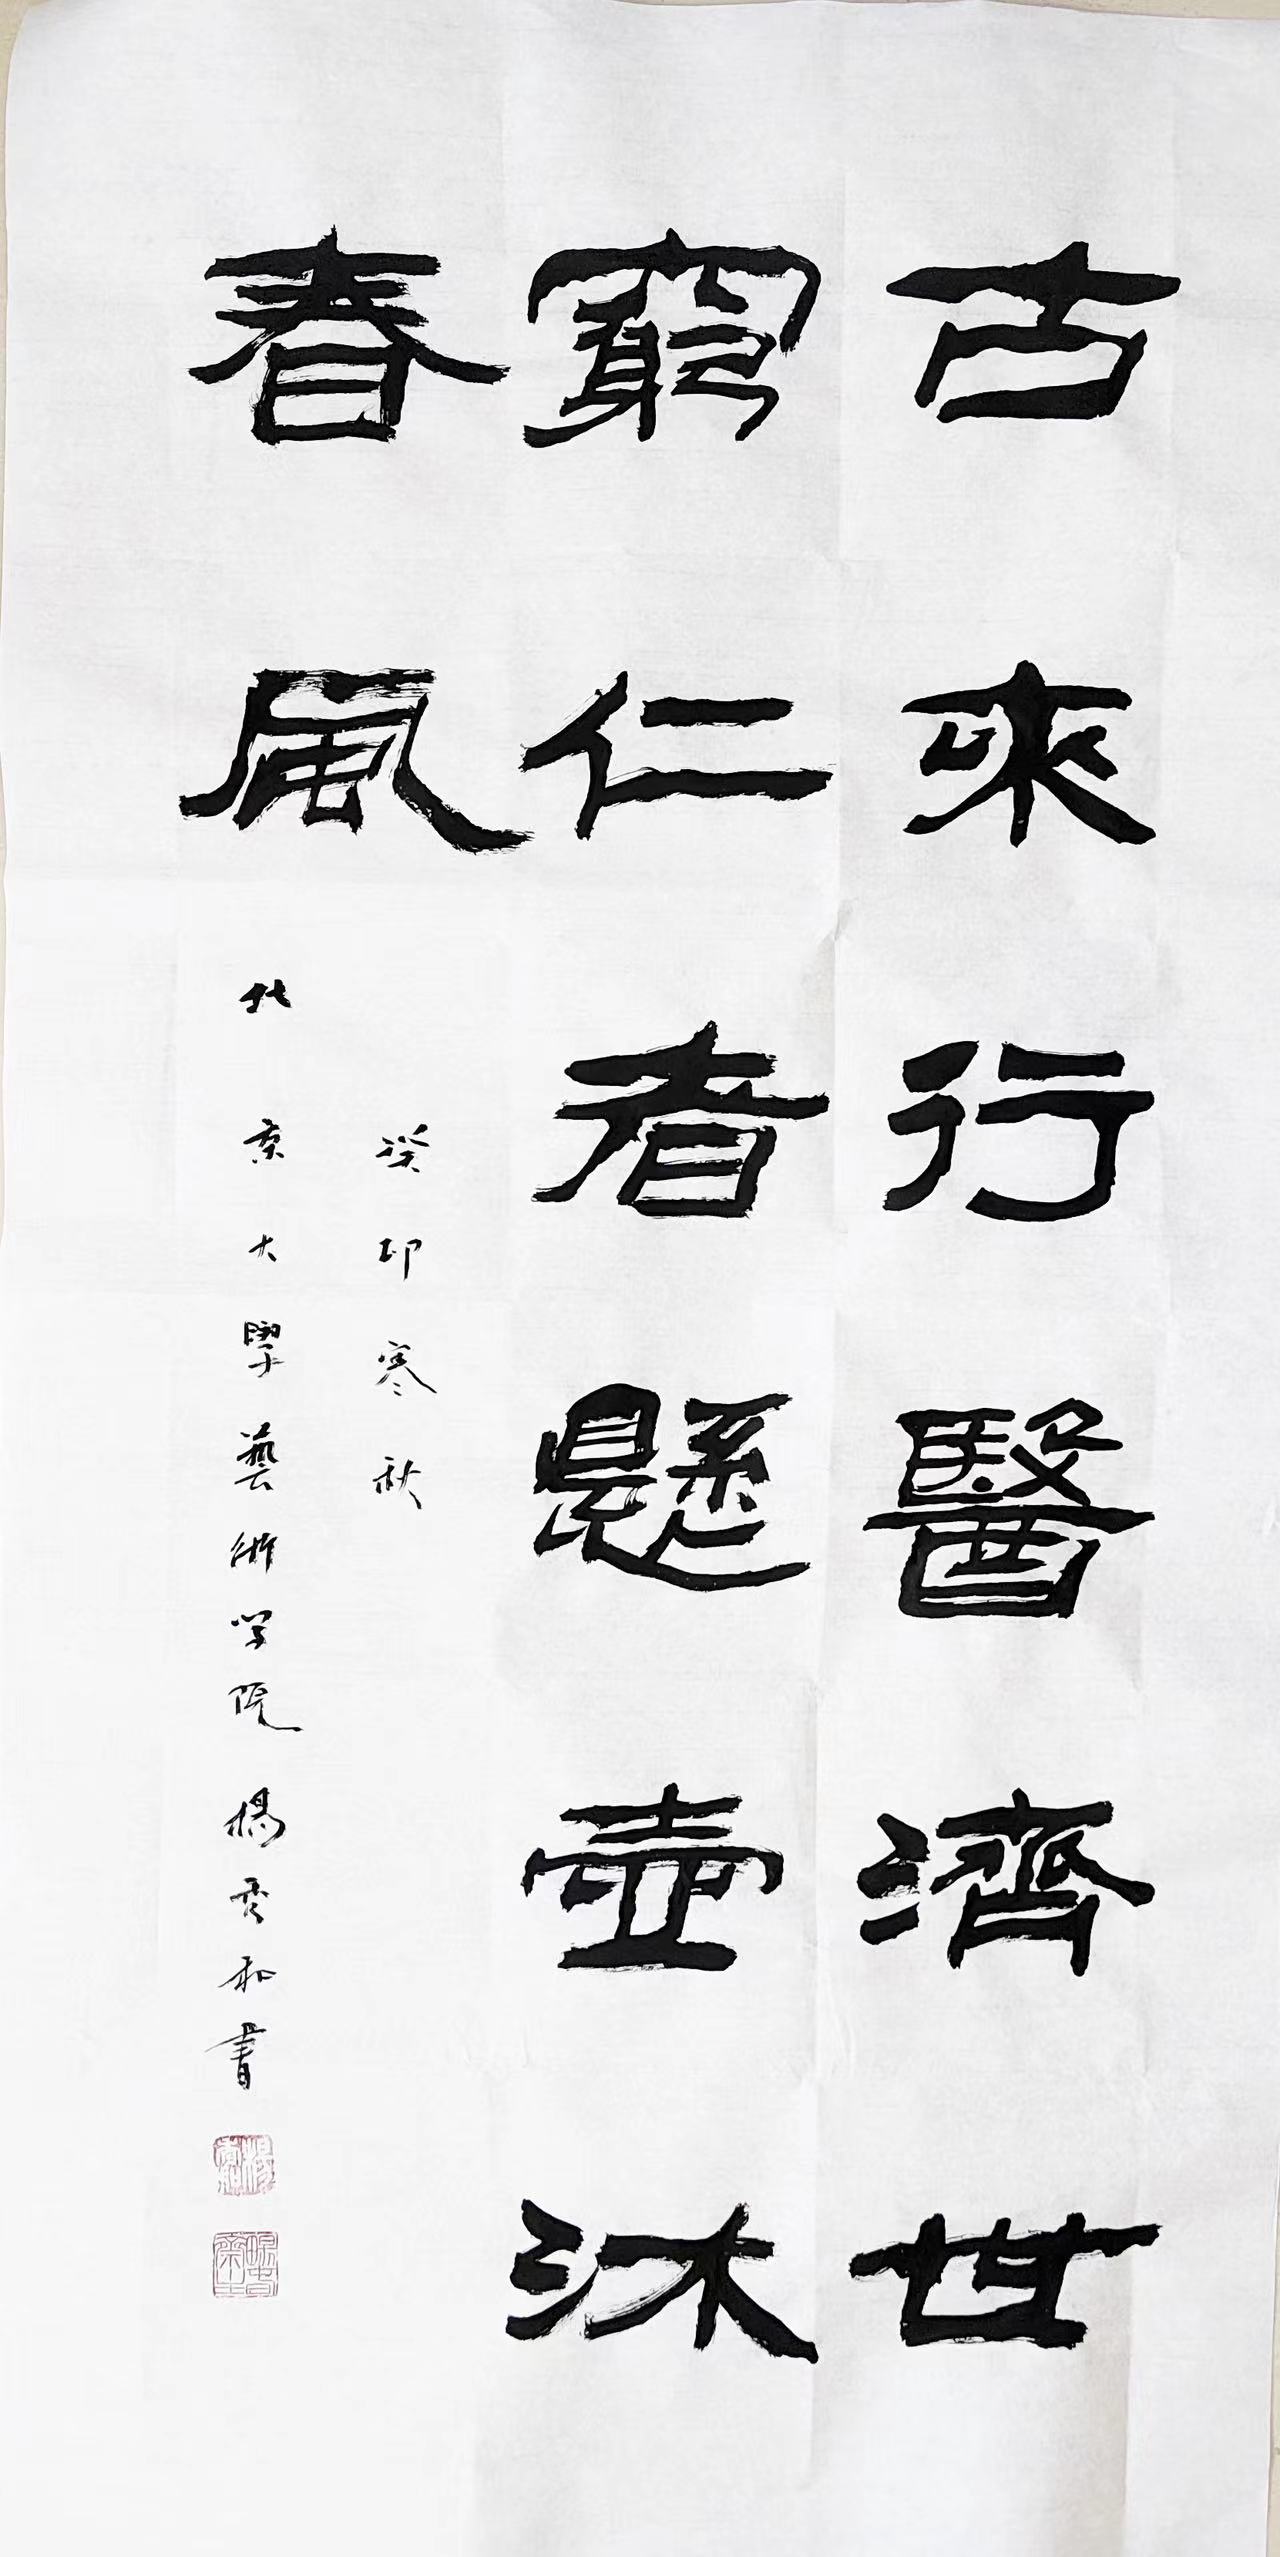 古來行醫濟世
窮仁者懸壺沐
春風
癸卯寒秋
北京大學藝術学院楊雲和書